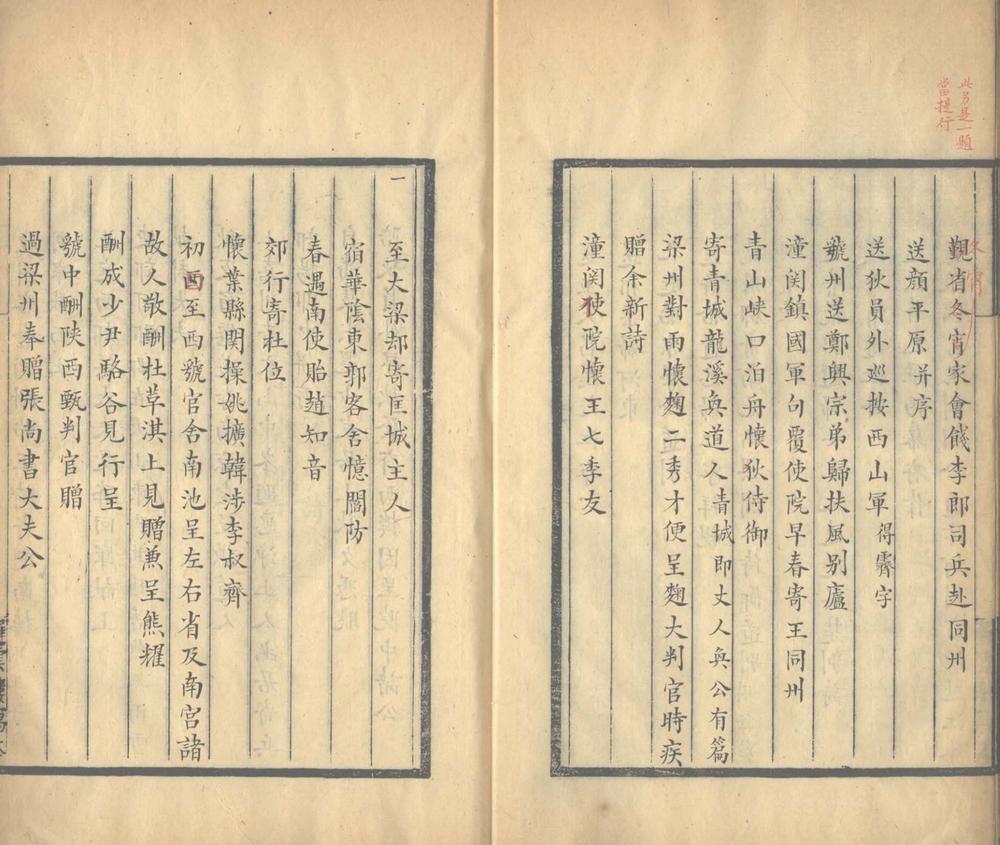 此另是一題
當提行
冬宵
覲省冬宵家會餞李郎司兵赴同州
送顔平原并序
送狄員外巡按西山軍得霽字
虢州送鄭興宗弟歸扶風别廬
潼関鎮國軍句覆使院早春寄王同州
青山峽口泊舟懷狄侍御
寄青城龍溪奐道人青城即丈人奐公有篇
梁州對雨懷麴二秀才便呈麴大判官時疾
贈余新詩
潼関使院懷王七季友
一
至大梁却寄匡城主人
宿華陰東郭客舍憶閻防
春遇南使貽趙知音
郊行寄杜位
懷葉縣関操姚擴韓涉李叔齊
初至西虢官舍南池呈左右省及南宫諸
故人敬酬杜華淇上見贈兼呈熊耀
酬成少尹駱谷見行呈
虢中酬陜西甄判官贈
過梁州奉贈張尚書大夫公